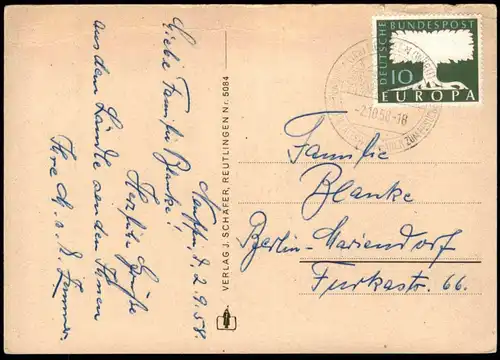 2.9.58.
Liebe Familie Blanke!
Herzliche Grüße
aus dem Ländle senden Ihnen
Ihre
VERLAG J. SCHÄFER, REUTLINGEN Nr. 5084
DEUTSCHE BUNDESPOST
10
EUROPA
-2.10.58.-18
Familie
Blanke
Berlin-Mariendorf
Furkastr. 66.